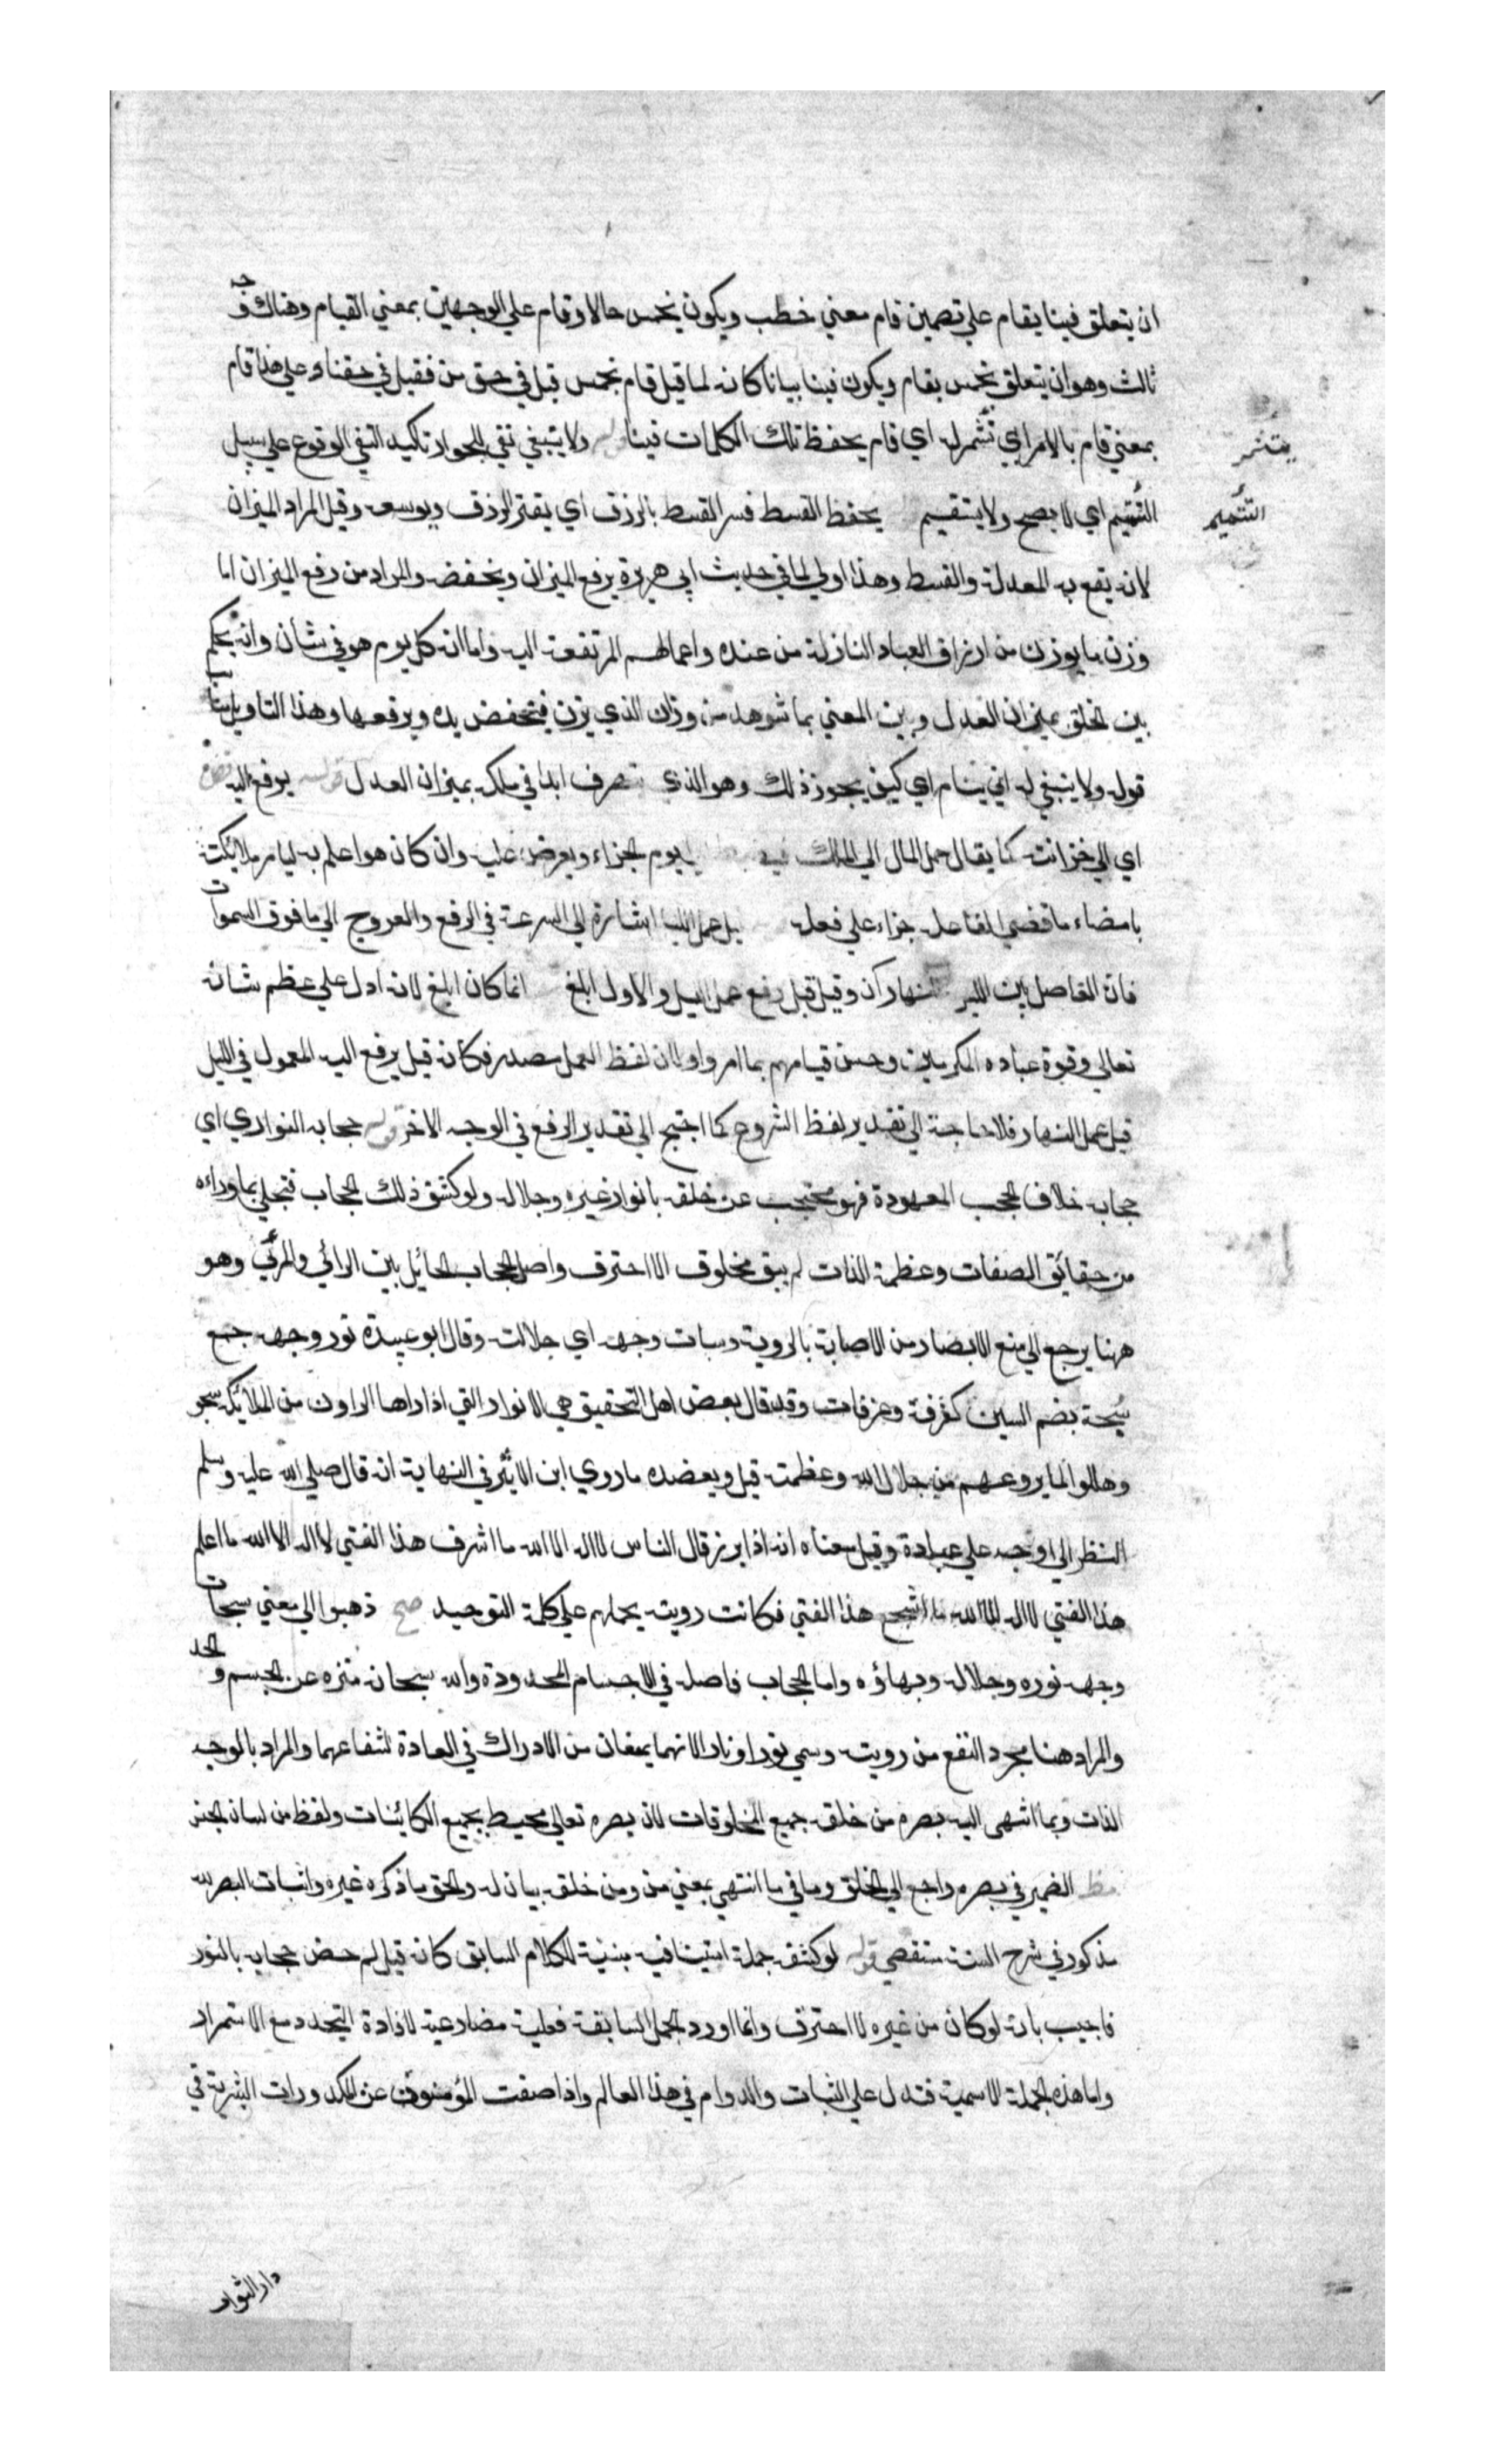 ان يتعلق فينا بقام على تضمين قام معنى خطب ويكون بخمس حالا وقام على الوجهين بمعنى القيام وهناك وجه
ثالث وهو ان يتعلق بخمس بقام ويكون فينا بيانا كانه لما قيل قام بخمس قيل في حق من فقيل في حقنا وعلى هذا قام
بمعنى قام بالامر اي تشمر له اي قام يحفظ تلك الكلمات فينا قوله ولا ينبغي نفي الجواز تاكيد النفي الوقوع على سبيل
يتشمر
التتميم اي لا يصح ولا يستقيم يحفظ القسط فسر القسط بالرزق اي يقتر الرزق ويوسعه وقيل المراد الميزان
التتميم
لانه يقع به المعدلة والقسط وهذا اولى لما في حديث ابي هريرة يرفع الميزان ويخفضه والمراد من رفع الميزان اما
وزن ما يوزن من ارزاق العباد النازلة من عنده واعمالهم المرتفعة اليه واما انه كل يوم هو في شان وانه يحكم
بين الخلق بميزان العدل وبين المعنى بما شوهد من وزن الذي يزن فيخفض يده ويرفعها وهذا التاويل يناسب
قوله ولا ينبغي له ان ينام اي كيف يجوز ذلك وهو الذي يتصرف ابدا في ملكه بميزان العدل قوله يرفع اليه
اي الى خزانته كما يقال حمل المال الى الملك يوم الجزاء ويعرض عليه وان كان هو اعلم به ليامر ملائكته
بامضاء ما قضى لفاعله جزاء على فعله قبل عمل الليل اشارة الى السرعة في الرفع والعروج الى ما فوق السموات
فان الفاصل بين الليل والنهار آن وقيل قبل رفع عمل الليل والاول ابلغ انما كان ابلغ لانه ادل على عظم شانه
تعالى وقوة عباده المكرمين وحسن قيامهم بما امروا ولان لفظ العمل مصدر فكانه قيل يرفع اليه المعمول في الليل
قبل عمل النهار فلا حاجة الى تقدير لفظ الشروع كما احتيج الى تقدير الرفع في الوجه الاخر قوله حجابه النور اي
حجابه خلاف الحجب المعهودة فهو محتجب عن خلقه بانوار عزه وجلاله ولو كشف ذلك الحجاب فتجلى بما وراءه
من حقائق الصفات وعظمة الذات لم يبق مخلوق الا احترق واصل الحجاب الحائل بين الرائي والمرئي وهو
ههنا يرجع الى منع الابصار من الاصابة بالروية وسبحات وجهه اي جلالته وقال ابو عبيدة نور وجهه جمع
سبحة بضم السين كغرفة وغرفات وقد قال بعض اهل التحقيق هي الانوار التي اذا راها الراون من الملائكة سبحوا
وهللوا لما يروعهم من جلال الله وعظمته قيل ويعضده ما روي ابن الاثير في النهاية انه قال صلى الله عليه وسلم
النظر الى وجه علي عبادة وقيل معناه انه اذا برز قال الناس لا اله الا الله ما اشرف هذا الفتى لا اله الا الله ما اعلم
هذا الفتى لا اله الا الله ما اشجع هذا الفتى فكانت رويته يحملهم على كلمة التوحيد صح ذهبوا الى معنى سبحات
وجهه نوره وجلاله وبهاؤه واما الحجاب فاصله في الاجسام المحدودة والله سبحانه منزه عن الجسم والحد
والمراد هنا مجرد المنع من رويته وسمي نورا ونارا لانهما يمنعان من الادراك في العادة لشعاعهما والمراد بالوجه
الذات وبما انتهى اليه بصره من خلقه جميع المخلوقات لان بصره تعالى محيط بجميع الكائنات ولفظ من لبيان الجنس
مظ الضمير في بصره راجع الى الخلق وما في ما انتهى بمعنى من ومن خلقه بيان له والحق ما ذكره غيره واثبات البصر لله
مذكور في شرح السنة مستقصى قوله لو كشفه جملة استينافية مبنية للكلام السابق كانه قيل لم خص حجابه بالنور
فاجيب بانه لو كان من غيره لاحترق وانما اورد الجمل السابقة فعلية مضارعية لافادة التجدد مع الاستمرار
واما هذه الجملة الاسمية فتدل على الثبات والدوام في هذا العالم واذا صفت المؤمنون عن الكدورات البشرية في
دار الثواب